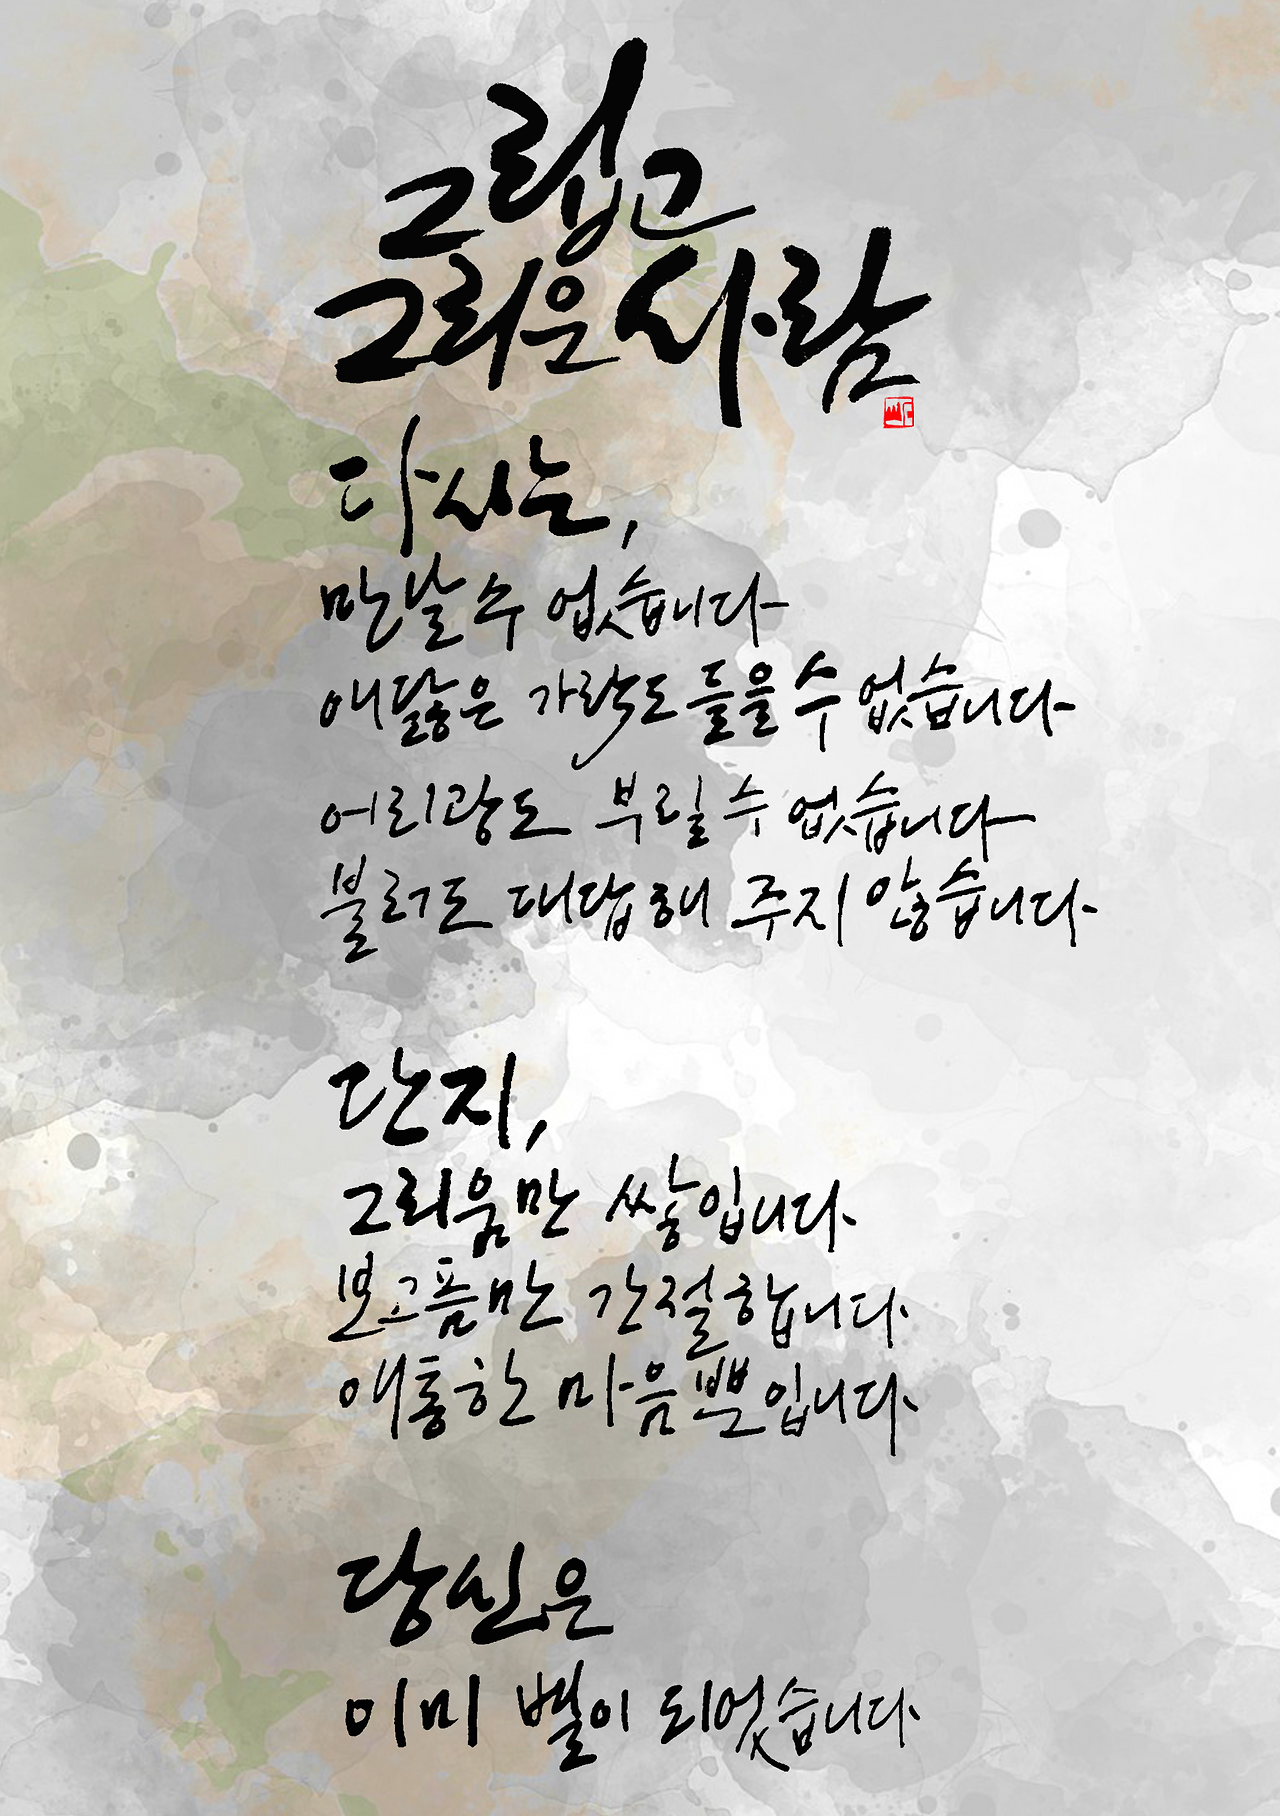 그립고
그리운 사람
다시는,
만날 수 없습니다
애닳은 가락도 들을 수 없습니다
어리광도 부릴 수 없습니다
불러도 대답해 주지 않습니다
단지,
그리움만 쌓입니다
보고픔만 간절합니다
애통한 마음뿐입니다
당신은
이미 별이 되었습니다